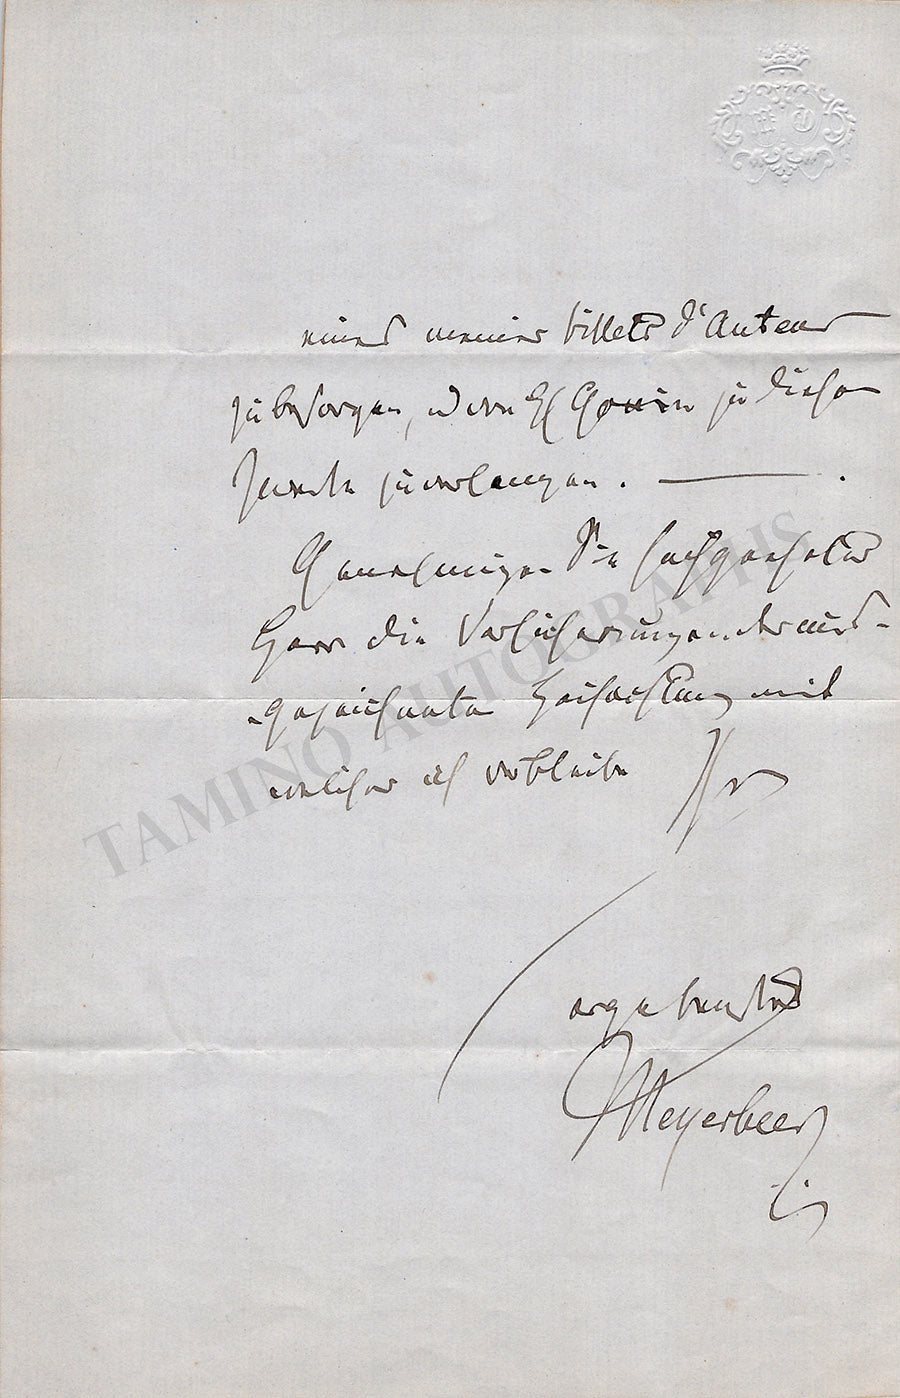 eines meiner billets d'Auteur
zu besorgen, u von H Gouin zu diesem
Zwecke zu verlangen. — .
Genehmigen Sie hochgeehrter
Herr die Versicherungen der aus-
-gezeichneten Hochachtung mit
welcher ich verbleibe Ihr
ergebenster
Meyerbeer
TAMINO AUTOGRAPHS